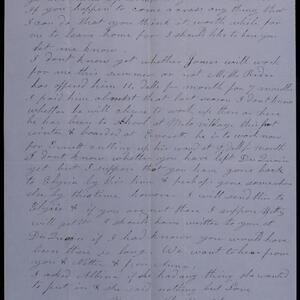 if you happen to come across any thing that
I can do that you think it worth while for
me to leave home for I should like to have you
let me know.
I dont know yet whether James will work
for me this summer or not Mr Rider
has offered him 11. dolls per month for 7 months
I paid him about that last season I dont know
whether he will always work up there or here
he has been to School at Melo village the last
winter & boarded at Everett he is to work now
for Everett cutting up his wood at 9 dolls per month
I dont know whether you have left DuQuoin
yet but I suppose that you have gone back
to Elyria by this time & perhaps gone somewhere
else by this time however. I will send this to
Elyria & if you are not there I suppose
will get it I should have written to you at
DuQuoin if I had known you would have
been there so long. We want to hear from
you & Nettie &
I asked Albina if she had any thing she wanted
to put in & she said nothing but love